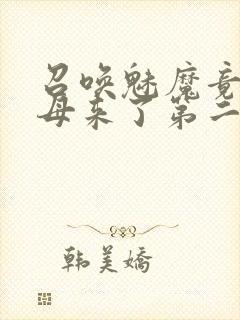 召唤魅魔竟
母来了第二
韩美娇